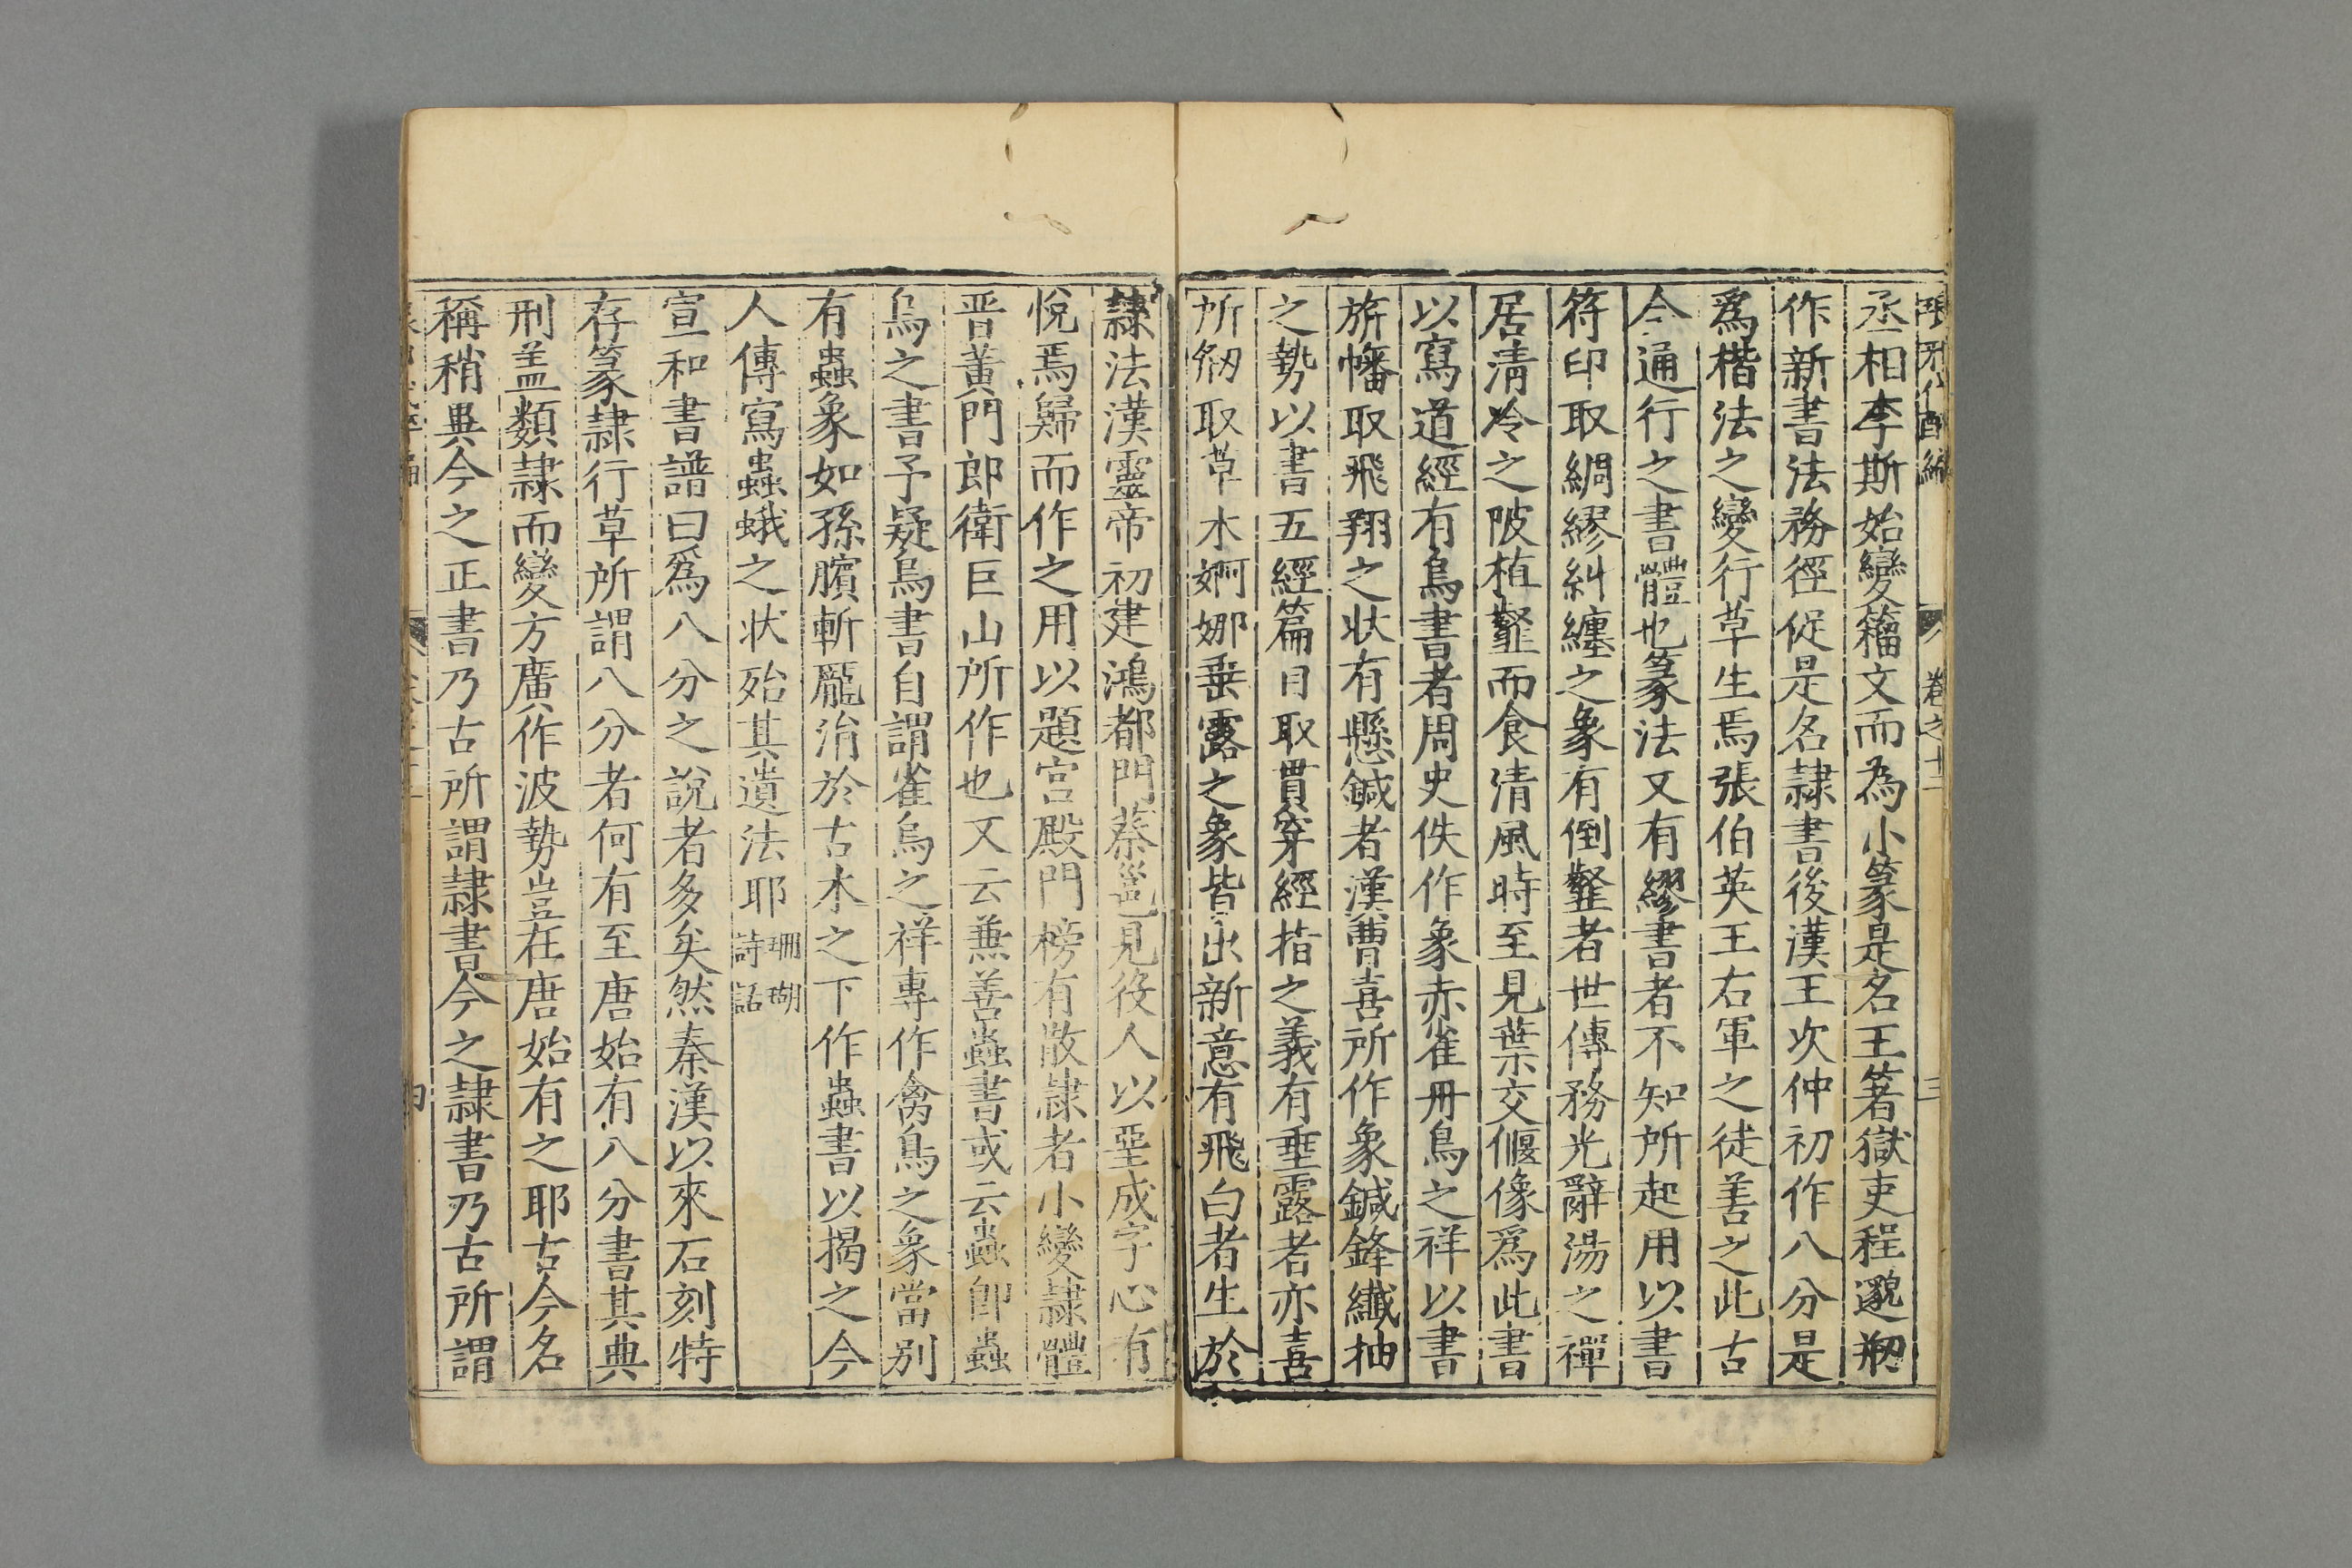 卷之十二
三
丞相李斯始變籀文而為小篆是名王著獄吏程邈刱
作新書法務徑促是名隷書後漢王次仲初作八分是
爲楷法之變行草生焉張伯英王右軍之徒善之此古
今通行之書體也篆法又有繆書者不知所起用以書
符印取綢繆糾纏之象有倒䪥者世傳務光辭湯之禪
居清冷之陂植䪥而食清風時至見葉交偃像爲此書
以寫道經有鳥書者周史佚作象赤雀丹鳥之祥以書
旂幡取飛翔之狀有懸鍼者漢曹喜所作象鍼鋒纖抽
之勢以書五經篇目取貫穿經指之義有垂露者亦喜
所刱取草木婀娜垂露之象皆出新意有飛白者生於
隷法漢靈帝初建鴻都門蔡邕見役人以堊成字心有
悅焉歸而作之用以題宮殿門榜有散隷者小變隷體
晋黃門郎衛巨山所作也又云兼善蟲書或云蟲卽蟲
鳥之書予疑鳥書自謂雀鳥之祥專作禽鳥之象當别
有蟲象如孫臏斬龐涓於古木之下作蟲書以揭之今
人傳寫蟲蛾之状殆其遺法耶珊瑚詩話
宣和書譜曰爲八分之說者多矣然秦漢以來石刻特
存篆隷行草所謂八分者何有至唐始有八分書其典
刑盖類隷而變方廣作波勢豈在唐始有之耶古今名
稱稍異今之正書乃古所謂隷書今之隷書乃古所謂